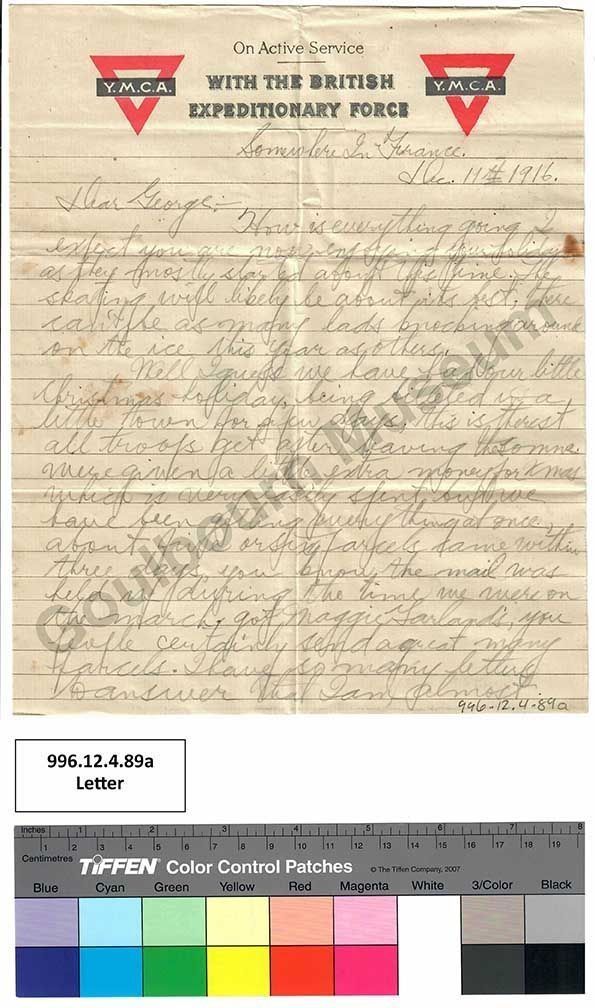 On Active Service
WITH THE BRITISH
EXPEDITIONARY FORCE
Y.M.C.A.
Y.M.C.A.
Somewhere In France.
Dec. 11th 1916.
Dear George:-
How is everything going I
expect you are now enjoying your holiday
as they mostly started about this time. The
skating will likely be about its best, there
can't be as many lads knocking around
on the ice this year as others.
Well I guess we have had our little
Christmas holiday, being in a
little town for a few days, this is the rest
all troops get after leaving the Somme.
Were given a little extra money for Xmas
which is very easily spent but we
have been getting everything at once,
about five or six parcels came within
three days you know the mail was
held up during the time we were on
the march, got Maggie Garland's, you
people certainly send a great many
parcels. I have so many letters
to answer that I am almost
996-12.4-89a
Goulbourn Museum
996.12.4.89a
Letter
Inches 1 2 3 4 5 6 7 8
Centimetres 1 2 3 4 5 6 7 8 9 10 11 12 13 14 15 16 17 18 19
TIFFEN Color Control Patches © The Tiffen Company, 2007
Blue Cyan Green Yellow Red Magenta White 3/Color Black